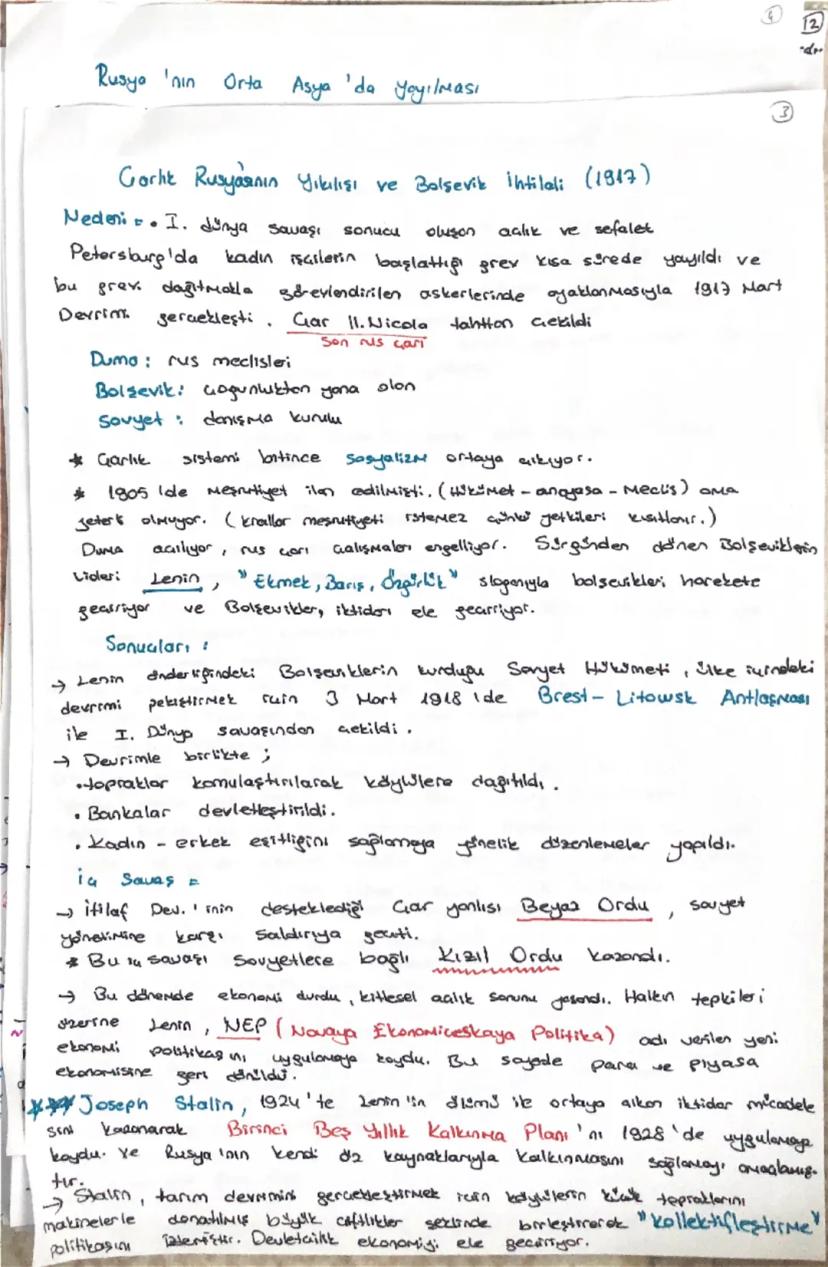 4
12
Rusya'nın Orta Asya'da Yayılması
3
Çarlık Rusyasının Yıkılışı ve Bolşevik İhtilali (1917)
Nedeni = • I. dünya savaşı sonucu oluşan açlık ve sefalet
Petersburg'da kadın işçilerin başlattığı grev kısa sürede yayıldı ve
bu grevi dağıtmakla görevlendirilen askerlerinde ayaklanmasıyla 1917 Mart
Devrimi gerçekleşti. Çar II. Nicola tahttan çekildi
son rus çarı
Duma : rus meclisleri
Bolşevik : çoğunluktan yana olan
Sovyet : danışma kurulu
* Çarlık sistemi bitince sosyalizm ortaya çıkıyor.
* 1905'de meşrutiyet ilan edilmişti. (Hükümet - anayasa - Meclis) ama
yeterli olmuyor. (krallar meşrutiyeti istemez çünkü yetkileri kısıtlanır.)
Duma açılıyor, rus çarı çalışmaları engelliyor. Sürgünden dönen Bolşeviklerin
Lideri Lenin, "Ekmek, Barış, Özgürlük" sloganıyla bolşevikleri harekete
geçiriyor ve Bolşevikler, iktidarı ele geçiriyor.
Sonuçları :
→ Lenin önderliğindeki Bolşeviklerin kurduğu Sovyet Hükümeti, ülke içindeki
devrimi pekiştirmek için 3 Mart 1918'de Brest-Litowsk Antlaşması
ile I. Dünya savaşından çekildi.
→ Devrimle birlikte ;
• topraklar kamulaştırılarak köylülere dağıtıldı.
• Bankalar devletleştirildi.
• Kadın - erkek eşitliğini sağlamaya yönelik düzenlemeler yapıldı.
İç Savaş =
→ İtilaf Dev.'inin desteklediği Çar yanlısı Beyaz Ordu, sovyet
yönetimine karşı saldırıya geçti.
* Bu iç savaşı Sovyetlere bağlı Kızıl Ordu kazandı.
→ Bu dönemde ekonomi durdu, kitlesel açlık sorunu yaşandı. Halkın tepkileri
üzerine Lenin, NEP (Novaya Ekonomiceskaya Politika) adı verilen yeni
ekonomi politikasını uygulamaya koydu. Bu sayede para ve piyasa
ekonomisine geri dönüldü.
*** Joseph Stalin, 1924'te Lenin'in ölümü ile ortaya çıkan iktidar mücadele
sini kazanarak Birinci Beş Yıllık Kalkınma Planı'nı 1928'de uygulamaya
koydu. Ve Rusya'nın kendi öz kaynaklarıyla kalkınmasını sağlamayı amaçlamış-
tır.
→ Stalin, tarım devrimini gerçekleştirmek için köylülerin küçük topraklarını
makinelerle donatılmış büyük çiftlikler şeklinde birleştirerek "Kollektifleştirme"
politikasını izlemiştir. Devletçilik ekonomiyi ele geçiriyor.